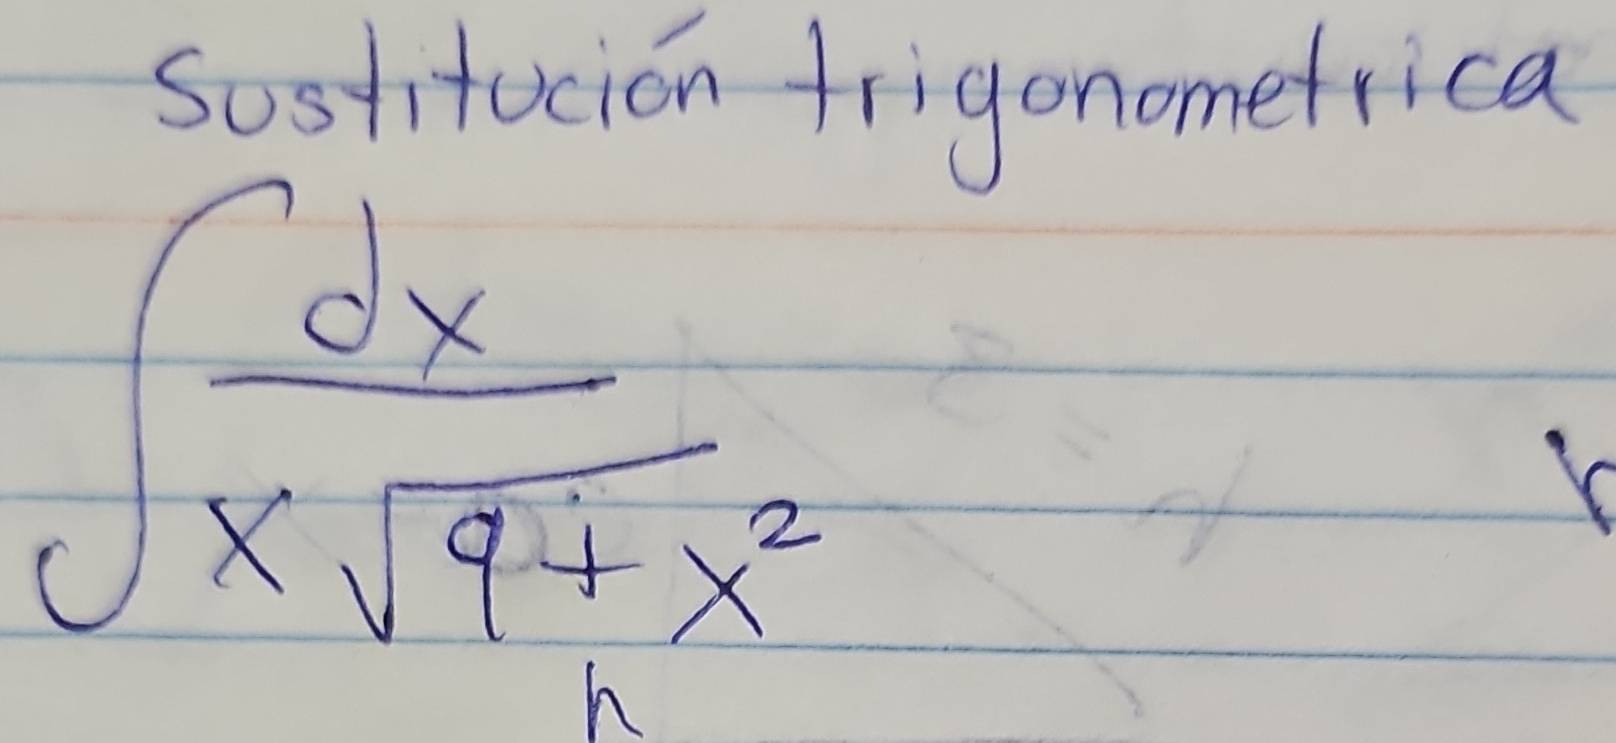 Sustitución trigonometrica
∫ dx
x√9 + x²
h
h